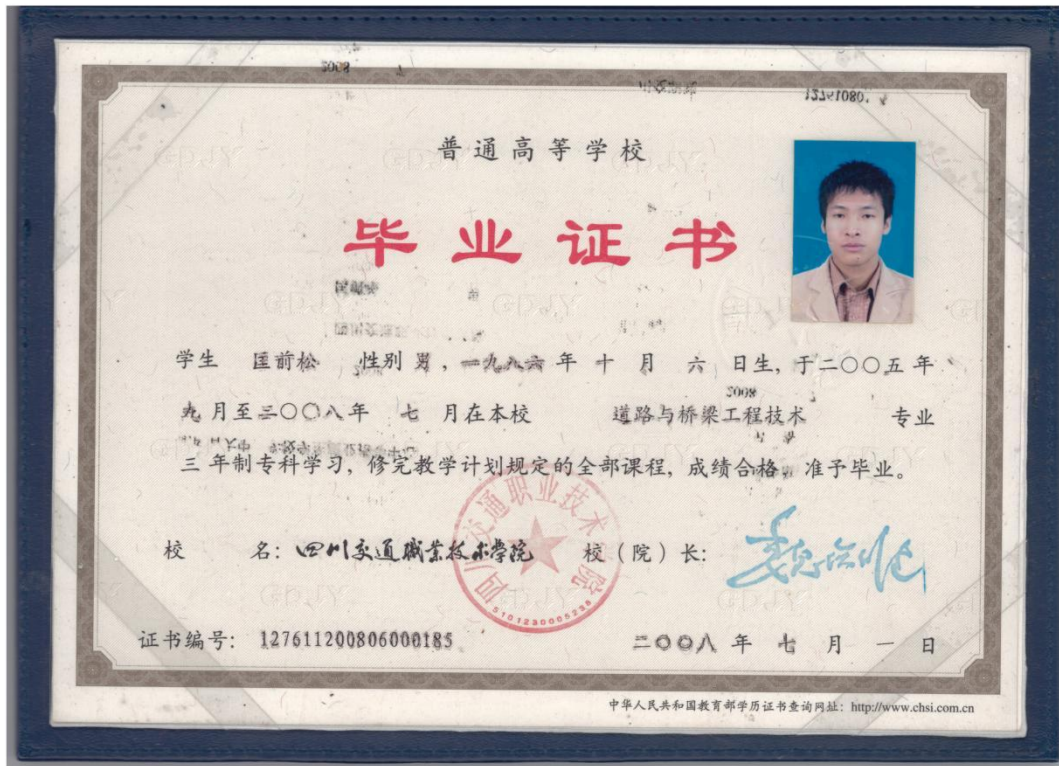 普通高等学校
毕业证书
学生 匡前松 性别 男，一九八六年 十 月 六 日生，于二〇〇五年
九月至二〇〇八年 七 月在本校 道路与桥梁工程技术 专业
三 年制专科学习，修完教学计划规定的全部课程，成绩合格，准予毕业。
校 名：四川交通職業技术學院 校（院）长：
四川交通职业技术学院
5101230005238
证书编号：127611200806000185 二〇〇八 年 七 月 一 日
中华人民共和国教育部学历证书查询网址：http://www.chsi.com.cn